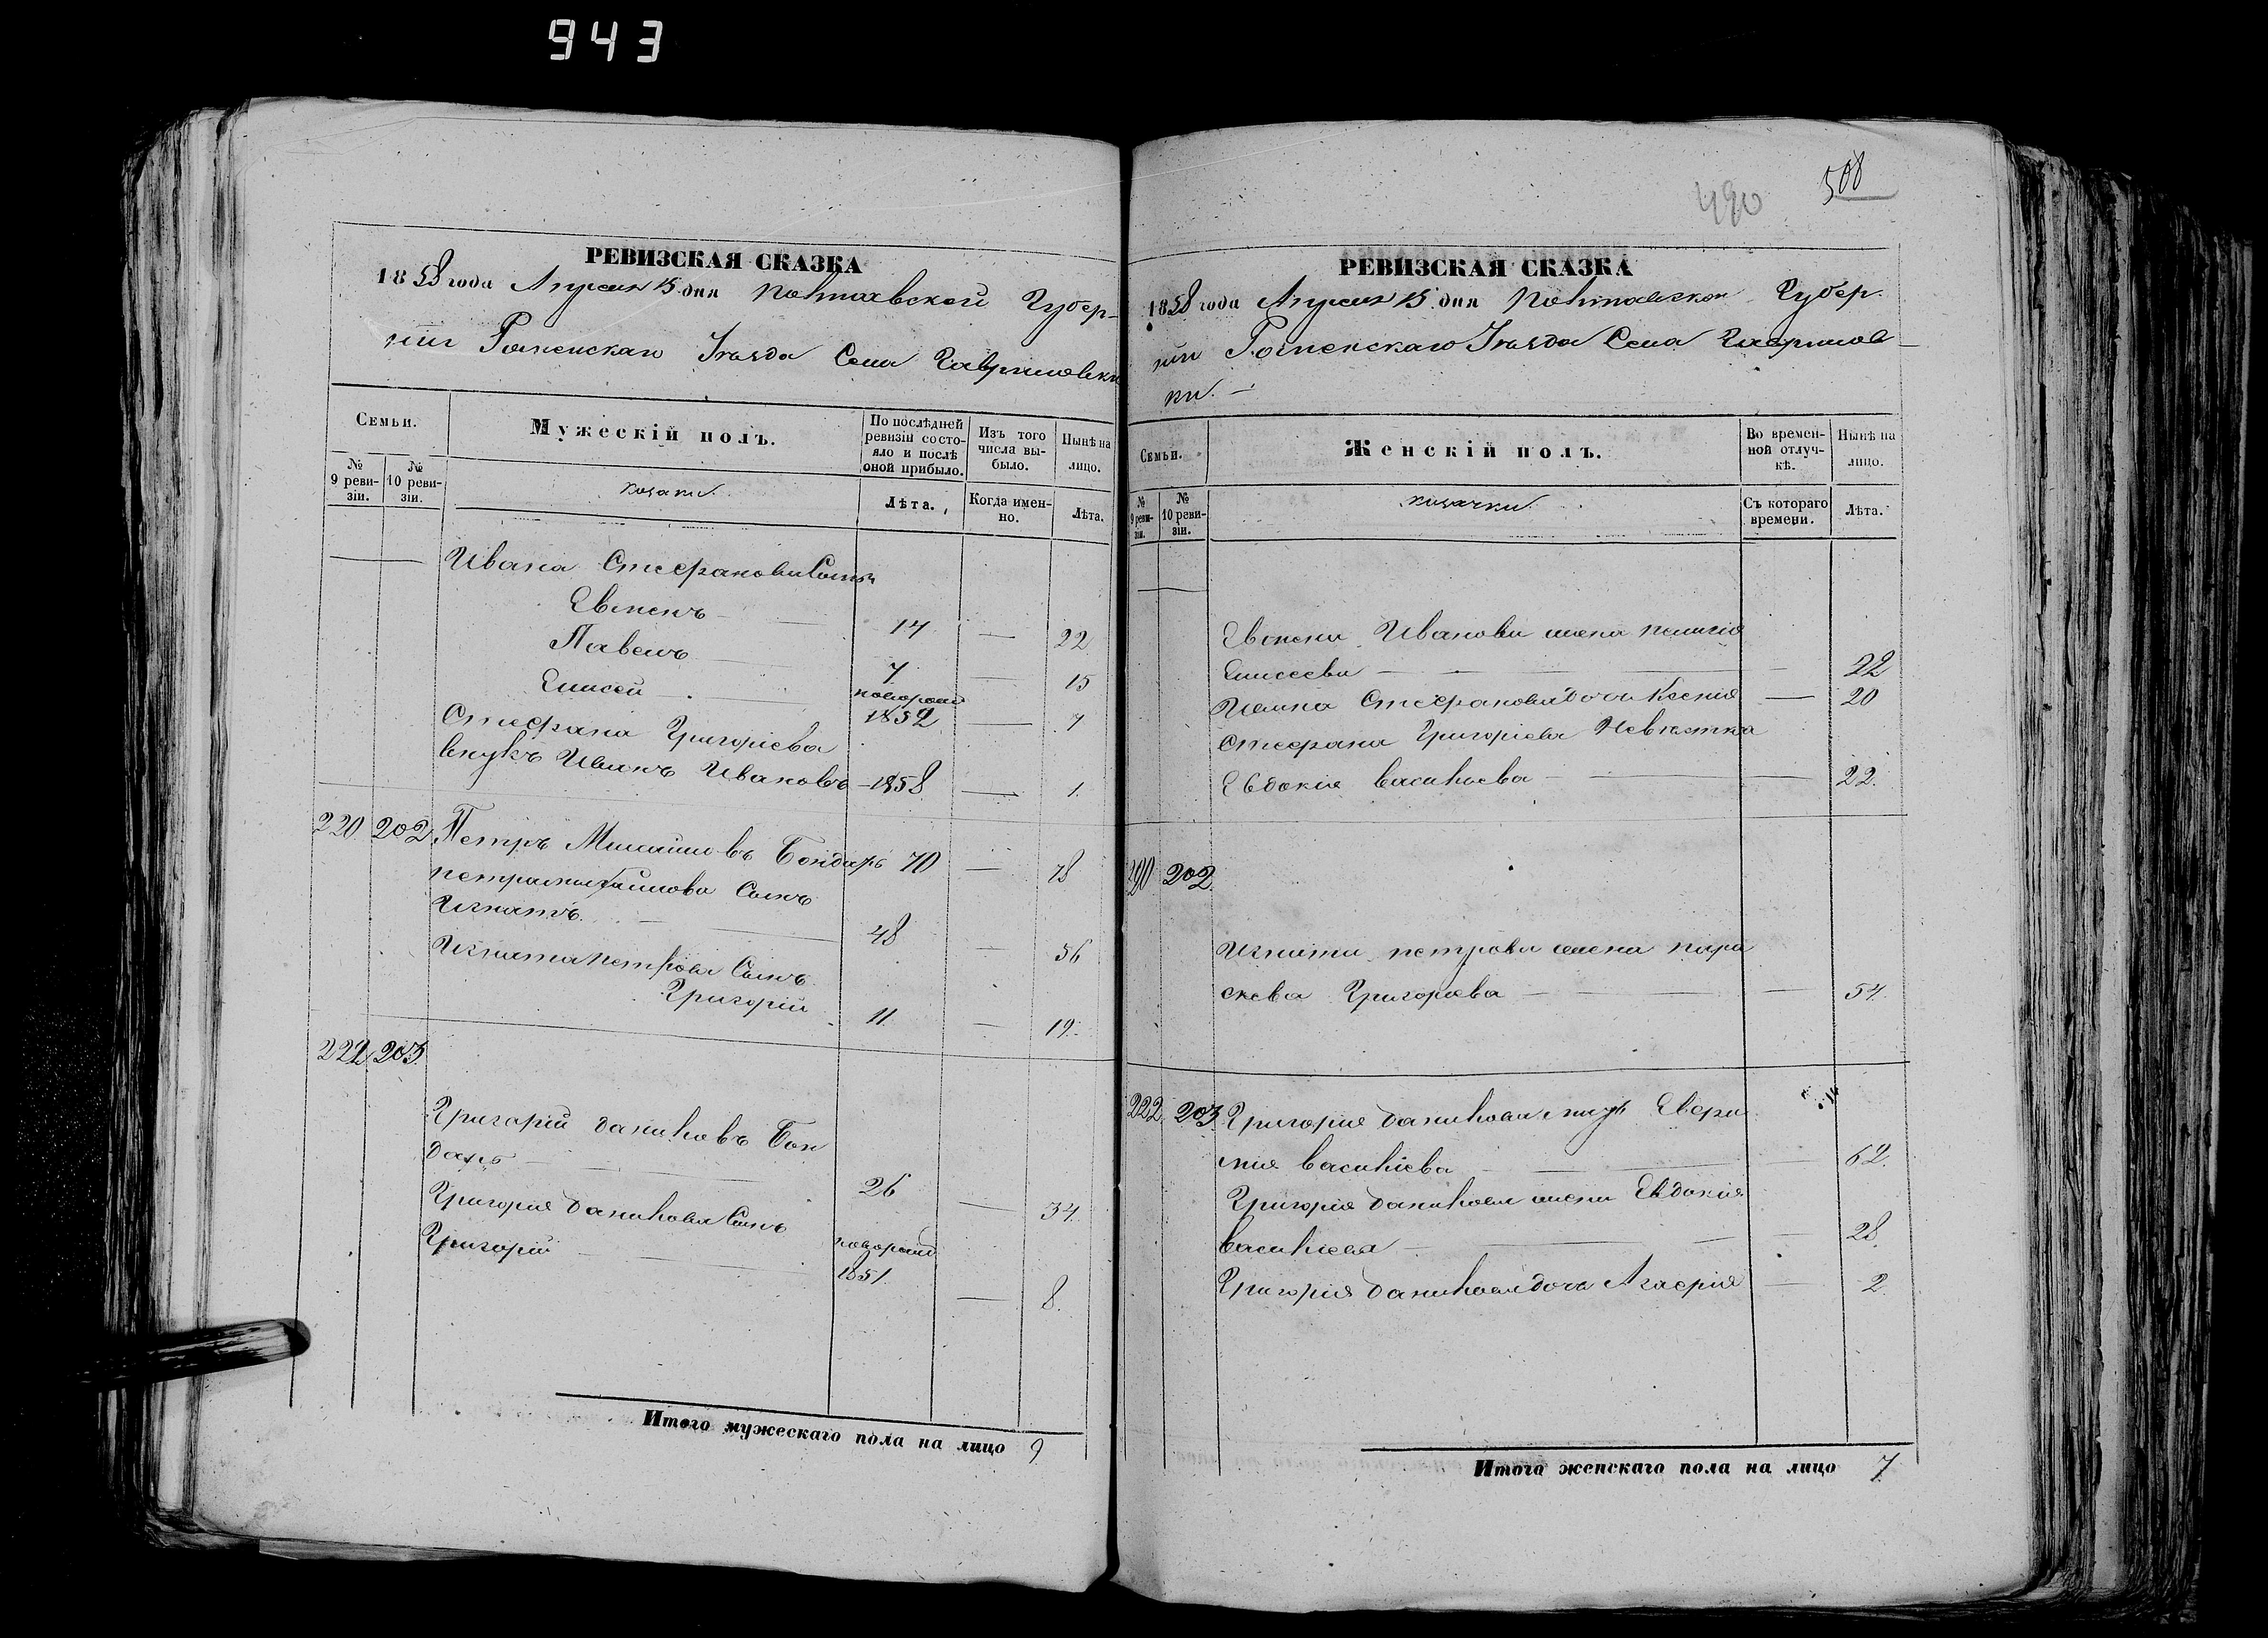 943
РЕВИЗСКАЯ СКАЗКА
1858 года Апреля 15 дня Полтавской Губер-
ніи Роменскаго Уѣзда Села Гавриловки
Семьи.
Мужескій полъ.
По послѣдней ревизіи состояло и послѣ оной прибыло.
Изъ того числа выбыло.
Нынѣ на лицо.
№ 9 ревизіи.
№ 10 ревизіи.
козаки.
Лѣта.
Когда именно.
Лѣта.
Ивана Стефанова Сынъ
Евменъ 14 — 22
Павелъ 7 15
Елисей новорожд 1852 — 7
Стефана Григоріева
внукъ Иванъ Ивановъ 1858 — 1.
220 202 Петръ Михайловъ Бондарь 70 — 78
Петра Михайлова Сынъ
Игнатъ. 48 — 56
Игната Петрова Сынъ
Григорій 11. — 19.
222 203
Григорій Даниловъ Бон
дарь 26 — 34.
Григорія Данилова Сынъ
Григорій новорожд 1851. — 8.
Итого мужескаго пола на лицо 9
490
508
РЕВИЗСКАЯ СКАЗКА
1858 года Апреля 15 дня Полтавской Губер.
ніи Роменскаго Уѣзда Села Гаврилов-
ки.
Семьи.
Женскій полъ.
Во временной отлучкѣ.
Нынѣ на лицо.
№ 9 ревизіи.
№ 10 ревизіи.
козачки.
Съ котораго времени.
Лѣта.
Евмена Иванова жена
Елисеева — 22
Ивана Стефанова дочь Ксенія — 20
Стефана Григоріева Невѣстка
Евдокія Васильева — 22.
220 202
Игната Петрова жена Пара
скева Григорьева — 54.
222 203 Григорія Данилова мать Евфи
мія Василіева 62.
Григорія Данилова жена Евдокія
Василіева — 28.
Григорія Данилова дочь Агафія — 2
Итого женскаго пола на лицо 7.